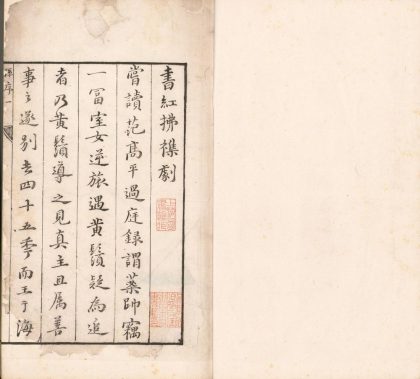 書紅拂襍劇
嘗讀范高平過庭録謂藥師竊
一富室女逆旅遇黄鬚疑為追
者乃黄鬚導之見真主且属善
事之遂别去四十五年而王于海
序一